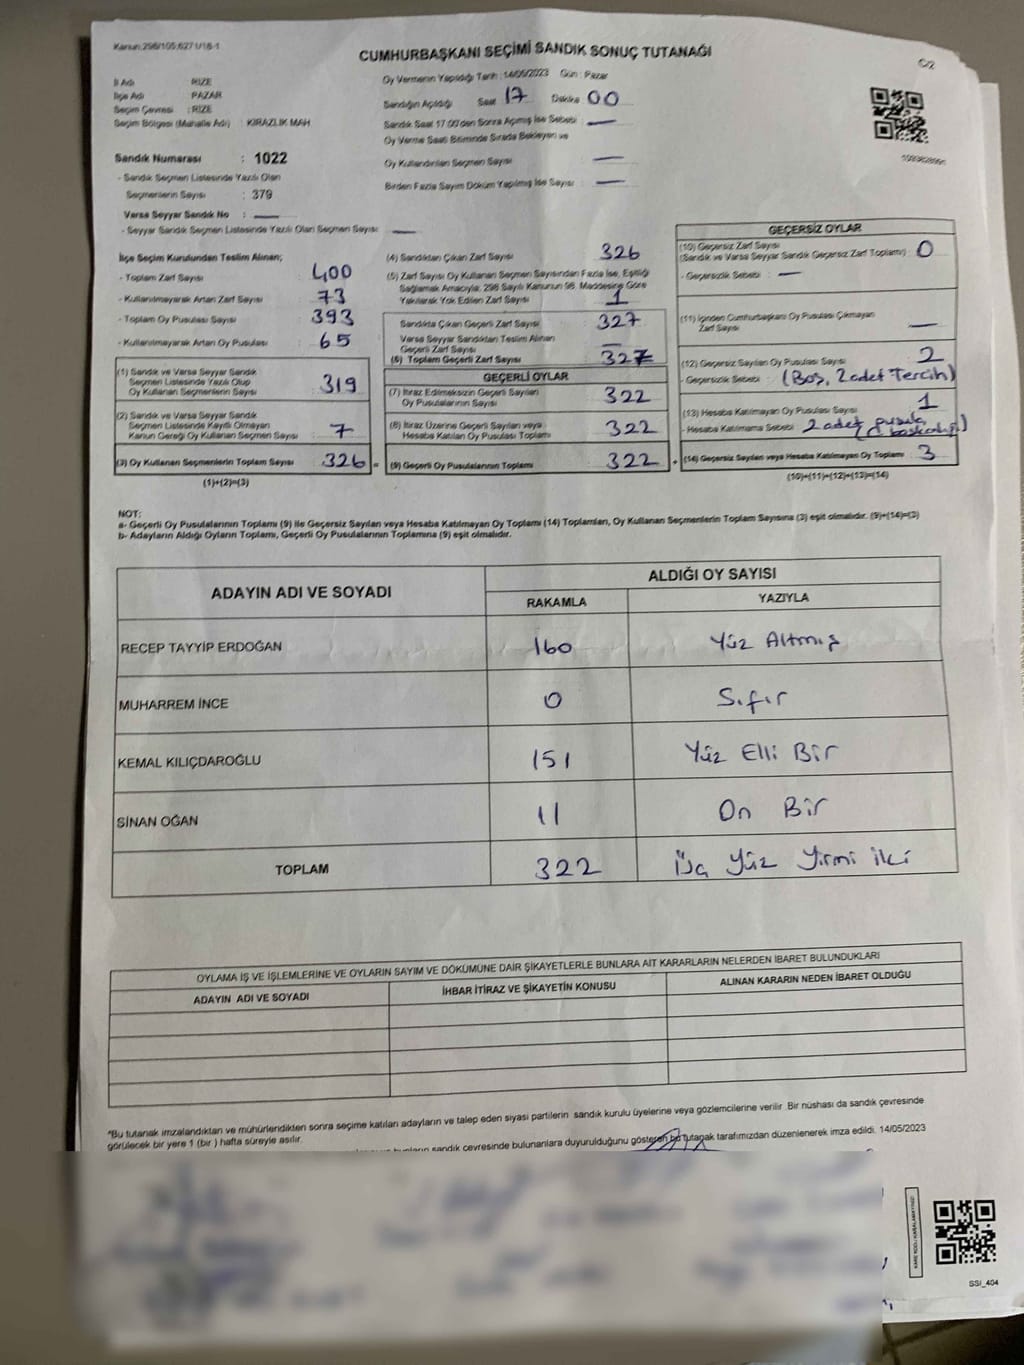 Kanun:298/105;6271/18-1
CUMHURBAŞKANI SEÇİMİ SANDIK SONUÇ TUTANAĞI
C/2
İl Adı : RİZE
İlçe Adı : PAZAR
Seçim Çevresi : RİZE
Seçim Bölgesi (Mahalle Adı) : KİRAZLIK MAH
Sandık Numarası : 1022
- Sandık Seçmen Listesinde Yazılı Olan
Seçmenlerin Sayısı : 379
Varsa Seyyar Sandık No : —
- Seyyar Sandık Seçmen Listesinde Yazılı Olan Seçmen Sayısı : —
Oy Vermenin Yapıldığı Tarih : 14/05/2023 Gün : Pazar
Sandığın Açıldığı Saat 17 Dakika 00
Sandık Saat 17:00'den Sonra Açılmış İse Sebebi : —
Oy Verme Saati Bitiminde Sırada Bekleyen ve
Oy Kullandırılan Seçmen Sayısı : —
Birden Fazla Sayım Döküm Yapılmış İse Sayısı : —
İlçe Seçim Kurulundan Teslim Alınan;
- Toplam Zarf Sayısı : 400
- Kullanılmayarak Artan Zarf Sayısı : 73
- Toplam Oy Pusulası Sayısı : 393
- Kullanılmayarak Artan Oy Pusulası : 65
(1) Sandık ve Varsa Seyyar Sandık
Seçmen Listesinde Yazılı Olup
Oy Kullanan Seçmenlerin Sayısı : 319
(2) Sandık ve Varsa Seyyar Sandık
Seçmen Listesinde Kayıtlı Olmayan
Kanun Gereği Oy Kullanan Seçmen Sayısı : 7
(3) Oy Kullanan Seçmenlerin Toplam Sayısı : 326 =
(1)+(2)=(3)
(4) Sandıktan Çıkan Zarf Sayısı : 326
(5) Zarf Sayısı Oy Kullanan Seçmen Sayısından Fazla İse, Eşitliği
Sağlamak Amacıyla; 298 Sayılı Kanunun 98. Maddesine Göre
Yakılarak Yok Edilen Zarf Sayısı : 1
Sandıkta Çıkan Geçerli Zarf Sayısı : 327
Varsa Seyyar Sandıktan Teslim Alınan
Geçerli Zarf Sayısı : —
(6) Toplam Geçerli Zarf Sayısı : 327
GEÇERLİ OYLAR
(7) İtiraz Edilmeksizin Geçerli Sayılan
Oy Pusulalarının Sayısı : 322
(8) İtiraz Üzerine Geçerli Sayılan veya
Hesaba Katılan Oy Pusulası Toplamı : 322
(9) Geçerli Oy Pusulalarının Toplamı : 322 +
GEÇERSİZ OYLAR
(10) Geçersiz Zarf Sayısı
(Sandık ve Varsa Seyyar Sandık Geçersiz Zarf Toplamı) : 0
- Geçersizlik Sebebi : —
(11) İçinden Cumhurbaşkanı Oy Pusulası Çıkmayan
Zarf Sayısı : —
(12) Geçersiz Sayılan Oy Pusulası Sayısı : 2
- Geçersizlik Sebebi : (Boş, 2 adet Tercih)
(13) Hesaba Katılmayan Oy Pusulası Sayısı : 1
- Hesaba Katılmama Sebebi : 2 adet pusula
(14) Geçersiz Sayılan veya Hesaba Katılmayan Oy Toplamı : 3
(10)+(11)+(12)+(13)=(14)
NOT:
a- Geçerli Oy Pusulalarının Toplamı (9) ile Geçersiz Sayılan veya Hesaba Katılmayan Oy Toplamı (14) Toplamları, Oy Kullanan Seçmenlerin Toplam Sayısına (3) eşit olmalıdır. (9)+(14)=(3)
b- Adayların Aldığı Oyların Toplamı, Geçerli Oy Pusulalarının Toplamına (9) eşit olmalıdır.
ADAYIN ADI VE SOYADI
ALDIĞI OY SAYISI
RAKAMLA YAZIYLA
RECEP TAYYİP ERDOĞAN 160 Yüz Altmış
MUHARREM İNCE 0 Sıfır
KEMAL KILIÇDAROĞLU 151 Yüz Elli Bir
SİNAN OĞAN 11 On Bir
TOPLAM 322 Üç Yüz Yirmi İki
OYLAMA İŞ VE İŞLEMLERİNE VE OYLARIN SAYIM VE DÖKÜMÜNE DAİR ŞİKAYETLERLE BUNLARA AİT KARARLARIN NELERDEN İBARET BULUNDUKLARI
ADAYIN ADI VE SOYADI İHBAR İTİRAZ VE ŞİKAYETİN KONUSU ALINAN KARARIN NEDEN İBARET OLDUĞU
*Bu tutanak imzalandıktan ve mühürlendikten sonra seçime katılan adayların ve talep eden siyasi partilerin sandık kurulu üyelerine veya gözlemcilerine verilir. Bir nüshası da sandık çevresinde
görülecek bir yere 1 (bir ) hafta süreyle asılır.
sandık çevresinde bulunanlara duyurulduğunu gösteren bu tutanak tarafımızdan düzenlenerek imza edildi. 14/05/2023
SSI_404